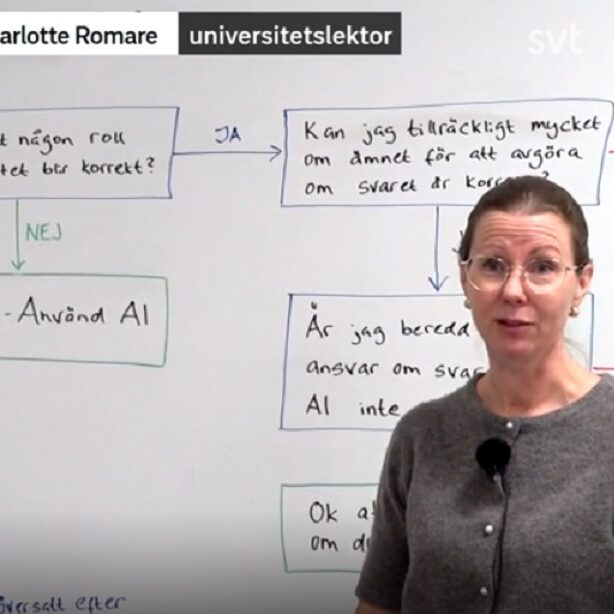 arlotte Romare universitetslektor
svt
t någon roll
tet blir korrekt?
JA
Kan jag tillräckligt mycket
om ämnet för att avgöra
om svaret är
NEJ
- Använd AI
Är jag beredd
ansvar om
AI inte
Ok
om
översatt efter